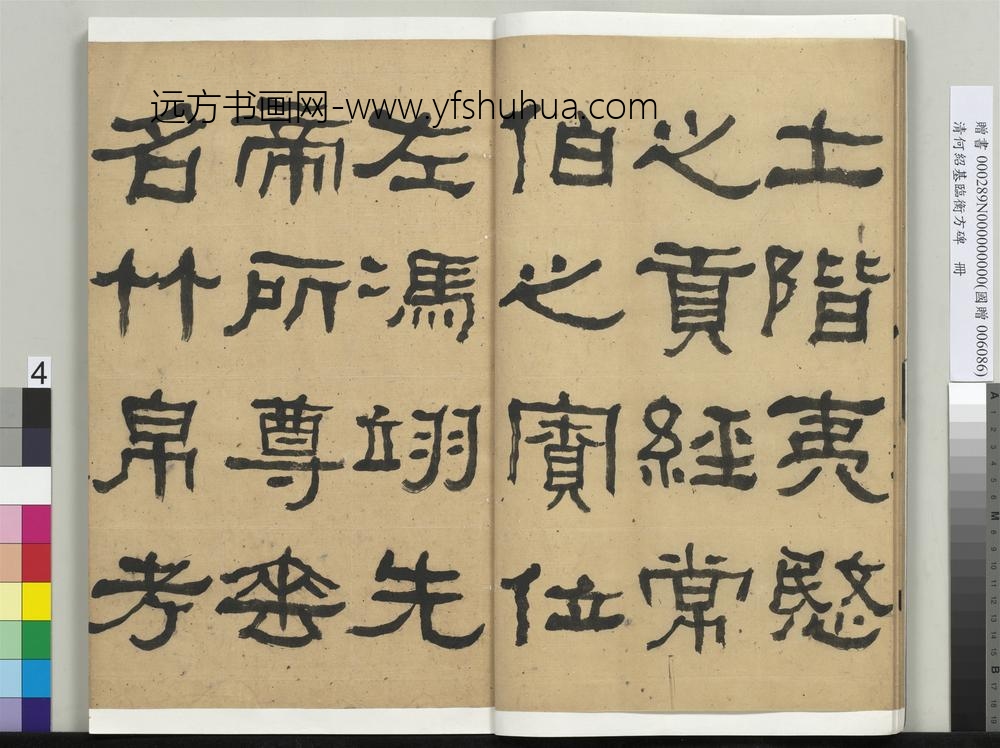 远方书画网-www.yfshuhua.com
土階夷愍
之貢經常
伯之寮位
左馮翊先
帝所尊垂
名竹帛考
贈書 000289N000000000(國贈 006086)
清何紹基臨衡方碑 冊
4
A 1 2 3 4 5 6 M 8 9 10 11 12 13 14 15 B 17 18 19